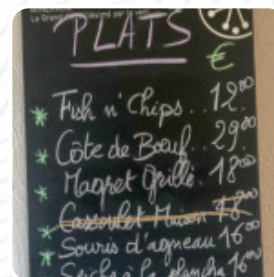 Le Grand
par le vent
PLATS
€
* Fish n' Chips .. 12,00
* Côte de Bœuf. 29,00
Magret Grillé. 18,00
* Cassoulet Maison
* Souris d'agneau 16,00
Seiche à la plancha 16,00